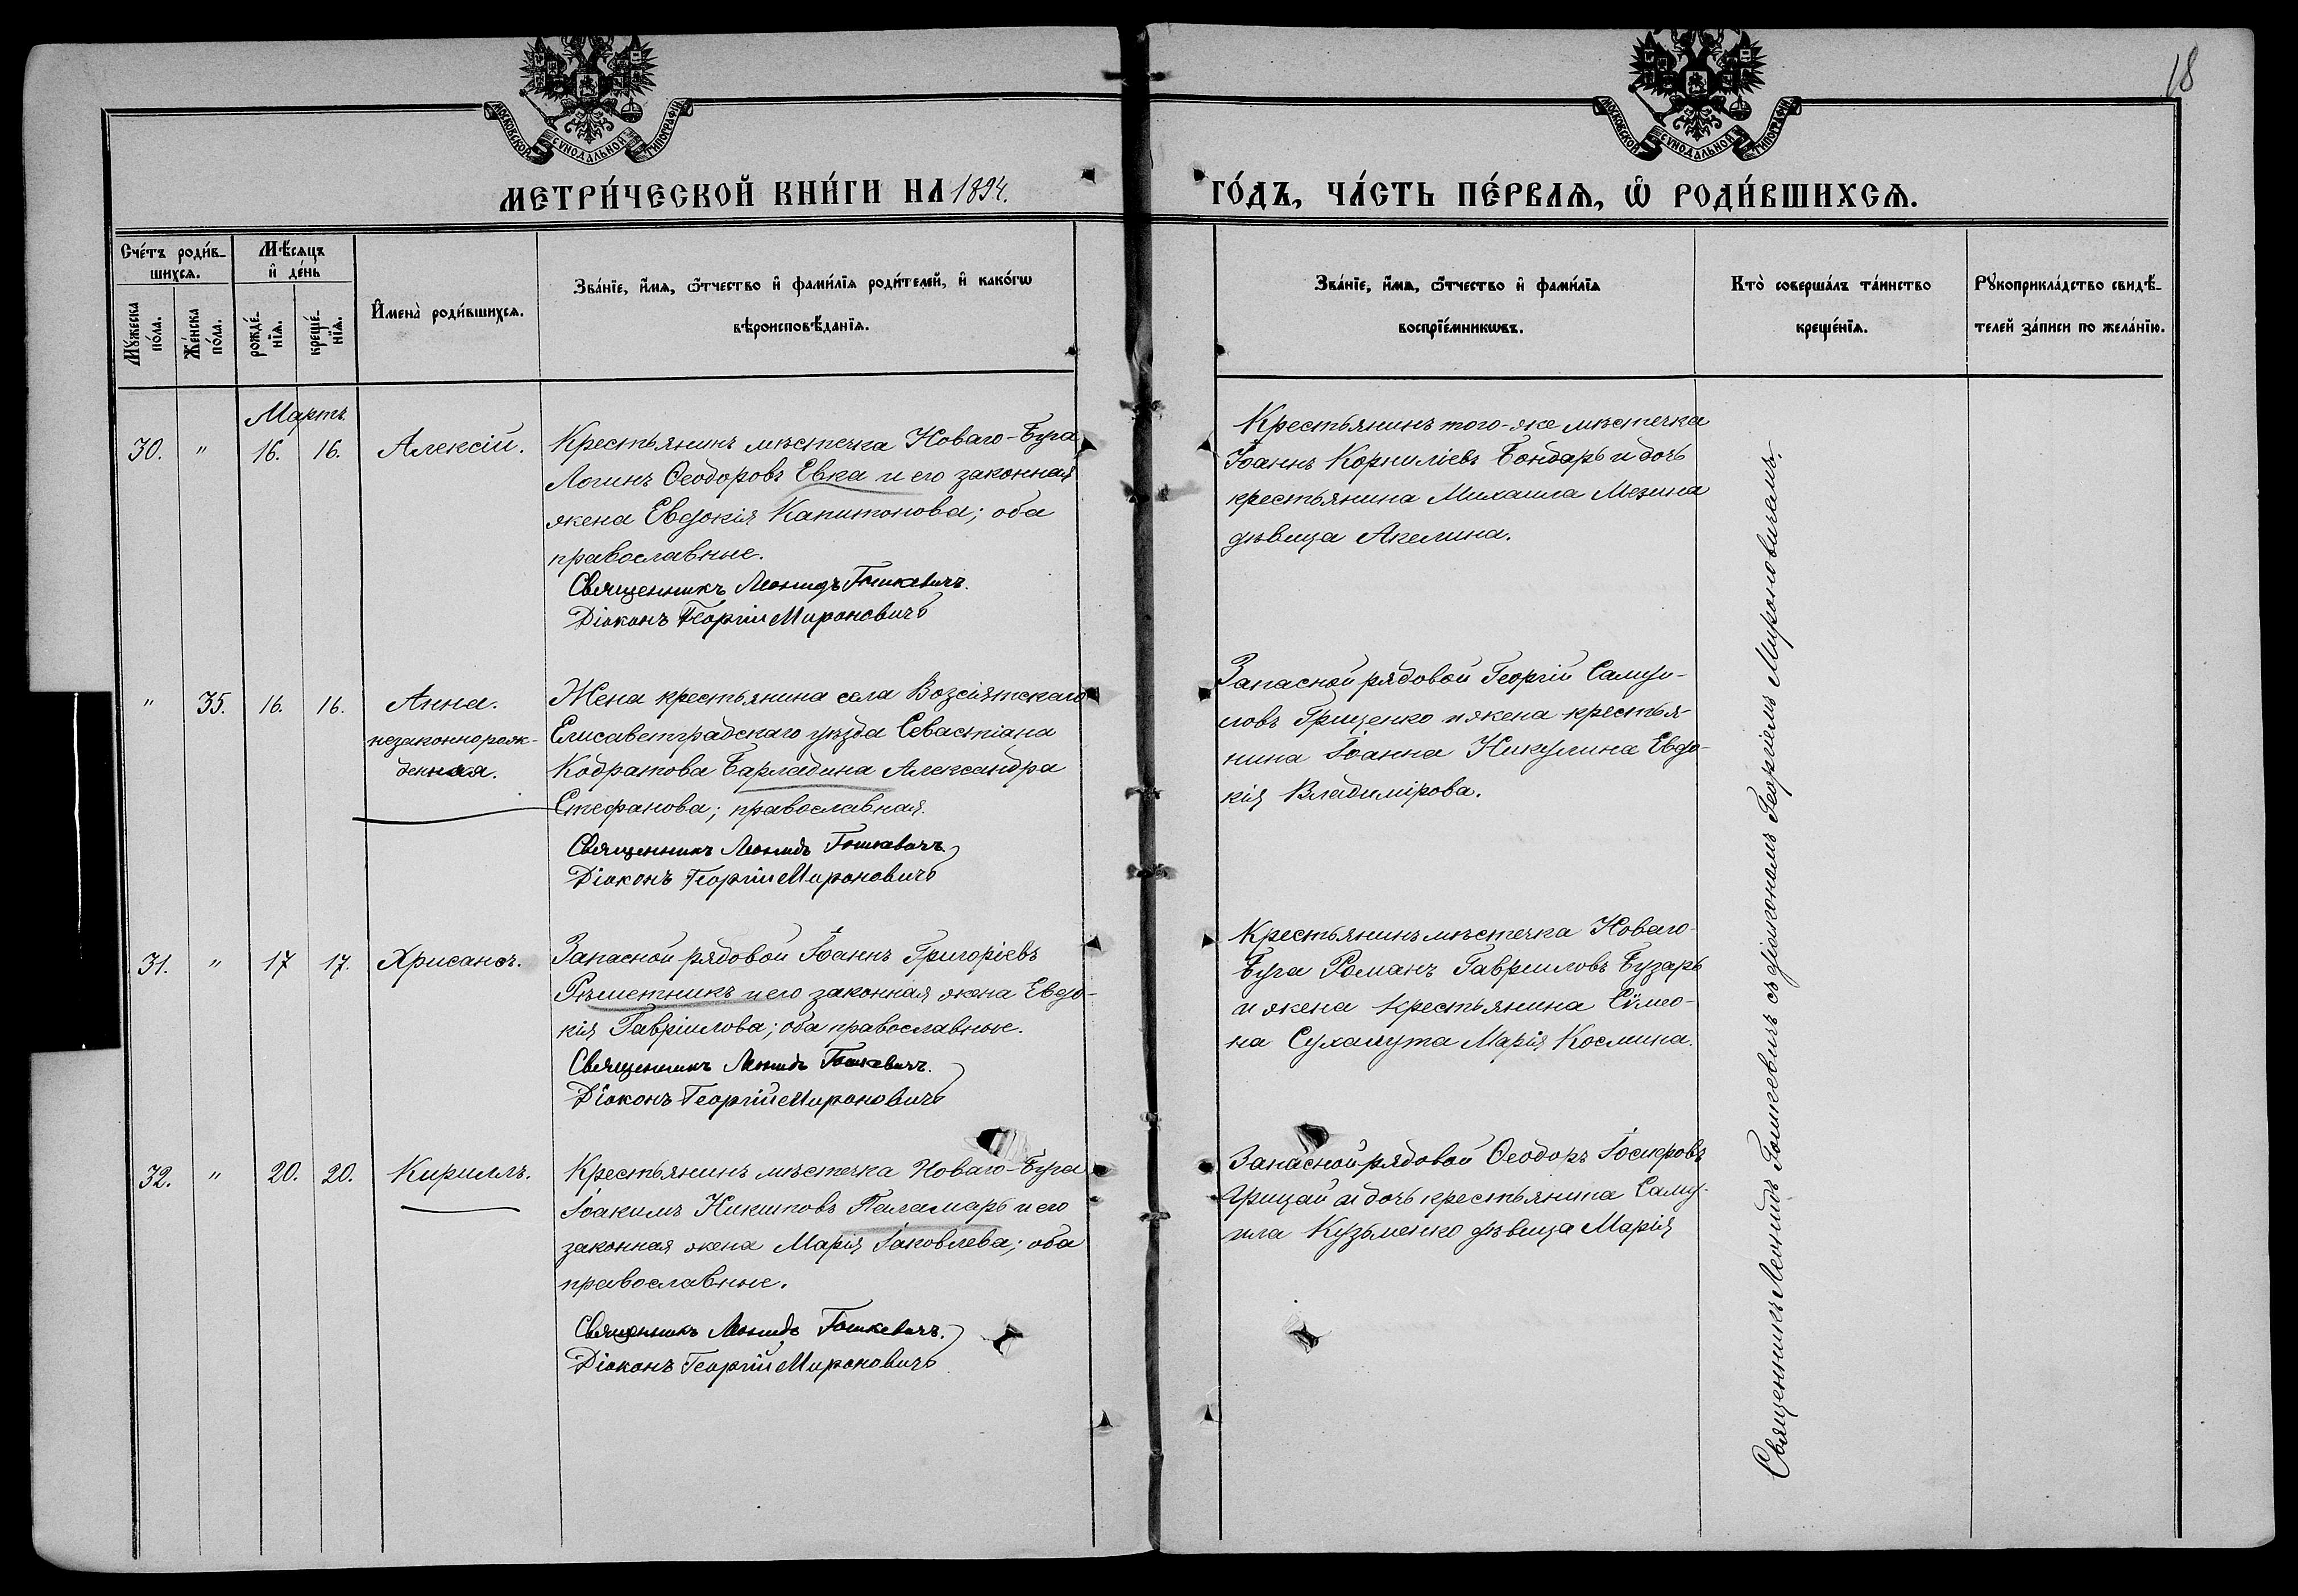 18
МОСКОВСКОЙ СѴНОДАЛЬНОЙ ТИПОГРАФІИ
МОСКОВСКОЙ СѴНОДАЛЬНОЙ ТИПОГРАФІИ
МЕТРИ́ЧЕСКОЙ КНИ́ГИ НА 1894.
ГО́ДЪ, ЧА́СТЬ ПЕ́РВАѦ, Ѡ҆ РОДИ́ВШИХСѦ.
Сче́тъ роди́в-
шихсѧ.
Мꙋ́жеска
по́ла.
Же́нска
по́ла.
Мѣ́сѧцъ
и҆ де́нь
рожде́-
нїѧ.
креще́-
нїѧ.
И҆мена̀ роди́вшихсѧ.
Зва́нїе, и҆́мѧ, ѻ҆́тчество и҆ фами́лїѧ роди́телей, и҆ како́гѡ
вѣроисповѣ́данїѧ.
Зва́нїе, и҆́мѧ, ѻ҆́тчество и҆ фами́лїѧ
воспрїе́мникѡвъ.
Кто̀ соверша́лъ та́инство
креще́нїѧ.
Рꙋкоприкла́дство свидѣ́-
телей за́писи по жела́нїю.
Мартъ.
30. " 16. 16. Алексій.
Крестьянинъ мѣстечка Новаго-Буга
Логинъ Ѳеодоровъ Евка и его законная
жена Евдокія Капитонова; оба
православные.
Священникъ Леонидъ Гошкевичъ.
Діаконъ Георгій Мироновичъ
Крестьянинъ того-же мѣстечка
Іоаннъ Корниліевъ Бондарь и дочь
крестьянина Михаила Мезина
дѣвица Акелина.
" 35. 16. 16. Анна.
незаконнорож-
денная.
Жена крестьянина села Возсіятскаго
Елисаветградскаго уѣзда Севастіана
Кодратова Барладина Александра
Стефанова; православная.
Священникъ Леонидъ Гошкевичъ
Діаконъ Георгій Мироновичъ
Запасной рядовой Георгій Самуи-
ловъ Грищенко и жена крестья-
нина Іоанна Никулина Евдо-
кія Владимірова.
31. " 17 17. Хрисанѳъ.
Запасной рядовой Іоаннъ Григоріевъ
Рѣшетникъ и его законная жена Евдо-
кія Гавріилова; оба православные.
Священникъ Леонидъ Гошкевичъ.
Діаконъ Георгій Мироновичъ
Крестьянинъ мѣстечка Новаго-
Буга Романъ Гавриловъ Бузарь
и жена крестьянина Сѵмео-
на Сухамута Марія Космина.
32. " 20. 20. Кириллъ.
Крестьянинъ мѣстечка Новаго-Буга
Іоакимъ Никитовъ Паламарь и его
законная жена Марія Іаковлева; оба
православные.
Священникъ Леонидъ Гошкевичъ.
Діаконъ Георгій Мироновичъ
Запасной рядовой Ѳеодоръ Іосифовъ
Грицай и дочь крестьянина Саму-
ила Кузьменко дѣвица Марія
Священникъ Леонидъ Гошкевичъ съ діакономъ Георгіемъ Мироновичемъ.